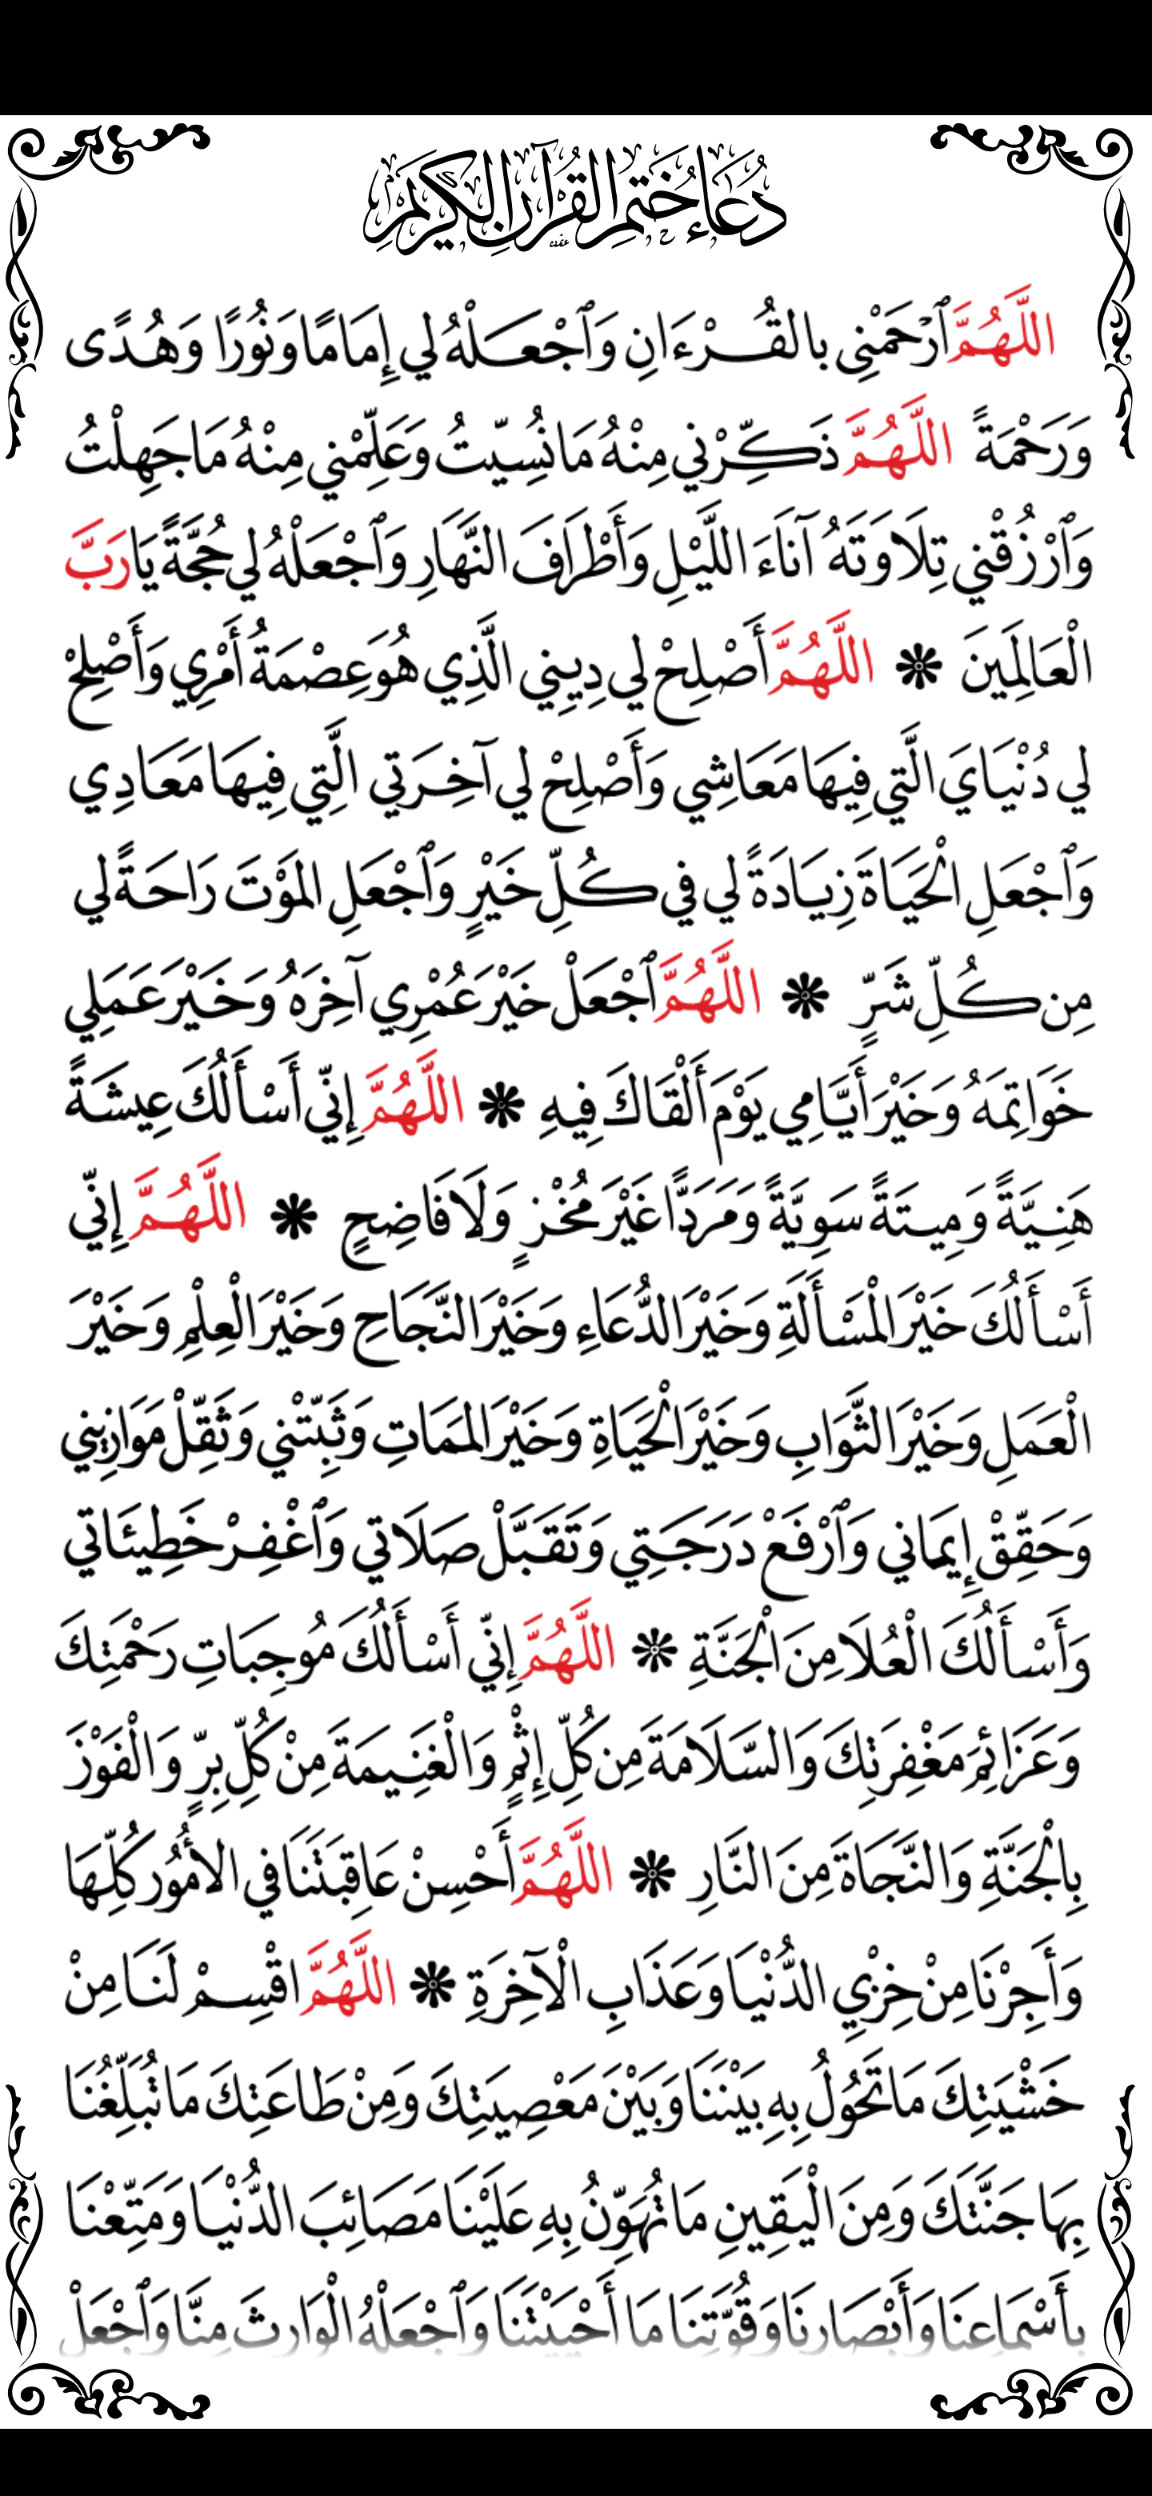 دُعَاءُ خَتْمِ القُرْآنِ الكَرِيمِ
اللَّهُمَّ ٱرْحَمْنِي بالقُرْءَانِ وَٱجْعَلْهُ لي إِمَامًا وَنُورًا وَهُدًى
وَرَحْمَةً اللَّهُمَّ ذَكِّرْني مِنْهُ مَا نُسِّيتُ وَعَلِّمْني مِنْهُ مَا جَهِلْتُ
وَٱرْزُقْني تِلَاوَتَهُ آنَاءَ اللَّيْلِ وَأَطْرَافَ النَّهَارِ وَٱجْعَلْهُ لي حُجَّةً يَا رَبَّ
الْعَالَمِينَ ❇ اللَّهُمَّ أَصْلِحْ لي دِيني الَّذِي هُوَ عِصْمَةُ أَمْرِي وَأَصْلِحْ
لي دُنْيَايَ الَّتي فِيهَا مَعَاشِي وَأَصْلِحْ لي آخِرَتي الَّتي فِيهَا مَعَادِي
وَٱجْعَلِ الْحَيَاةَ زِيَادَةً لي في كُلِّ خَيْرٍ وَٱجْعَلِ المَوْتَ رَاحَةً لي
مِن كُلِّ شَرٍّ ❇ اللَّهُمَّ ٱجْعَلْ خَيْرَ عُمْرِي آخِرَهُ وَخَيْرَ عَمَلِي
خَوَاتِمَهُ وَخَيْرَ أَيَّامِي يَوْمَ أَلْقَاكَ فِيهِ ❇ اللَّهُمَّ إِنِّي أَسْأَلُكَ عِيشَةً
هَنِيَّةً وَمِيتَةً سَوِيَّةً وَمَرَدًّا غَيْرَ مُخْزٍ وَلَا فَاضِحٍ ❇ اللَّهُمَّ إِنِّي
أَسْأَلُكَ خَيْرَ الْمَسْأَلَةِ وَخَيْرَ الدُّعَاءِ وَخَيْرَ النَّجَاحِ وَخَيْرَ الْعِلْمِ وَخَيْرَ
الْعَمَلِ وَخَيْرَ الثَّوَابِ وَخَيْرَ الْحَيَاةِ وَخَيْرَ المَمَاتِ وَثَبِّتْني وَثَقِّلْ مَوَازِيني
وَحَقِّقْ إِيمَاني وَٱرْفَعْ دَرَجَتِي وَتَقَبَّلْ صَلَاتي وَٱغْفِرْ خَطِيئَاتي
وَأَسْأَلُكَ الْعُلَا مِنَ الْجَنَّةِ ❇ اللَّهُمَّ إِنِّي أَسْأَلُكَ مُوجِبَاتِ رَحْمَتِكَ
وَعَزَائِمَ مَغْفِرَتِكَ وَالسَّلَامَةَ مِن كُلِّ إِثْمٍ وَالْغَنِيمَةَ مِنْ كُلِّ بِرٍّ وَالْفَوْزَ
بِالْجَنَّةِ وَالنَّجَاةَ مِنَ النَّارِ ❇ اللَّهُمَّ أَحْسِنْ عَاقِبَتَنَا في الأُمُورِ كُلِّهَا
وَأَجِرْنَا مِنْ خِزْيِ الدُّنْيَا وَعَذَابِ الْآخِرَةِ ❇ اللَّهُمَّ اقْسِمْ لَنَا مِنْ
خَشْيَتِكَ مَا تَحُولُ بِهِ بَيْنَنَا وَبَيْنَ مَعْصِيَتِكَ وَمِنْ طَاعَتِكَ مَا تُبَلِّغُنَا
بِهَا جَنَّتَكَ وَمِنَ الْيَقِينِ مَا تُهَوِّنُ بِهِ عَلَيْنَا مَصَائِبَ الدُّنْيَا وَمَتِّعْنَا
بِأَسْمَاعِنَا وَأَبْصَارِنَا وَقُوَّتِنَا مَا أَحْيَيْتَنَا وَٱجْعَلْهُ الْوَارِثَ مِنَّا وَٱجْعَلْ